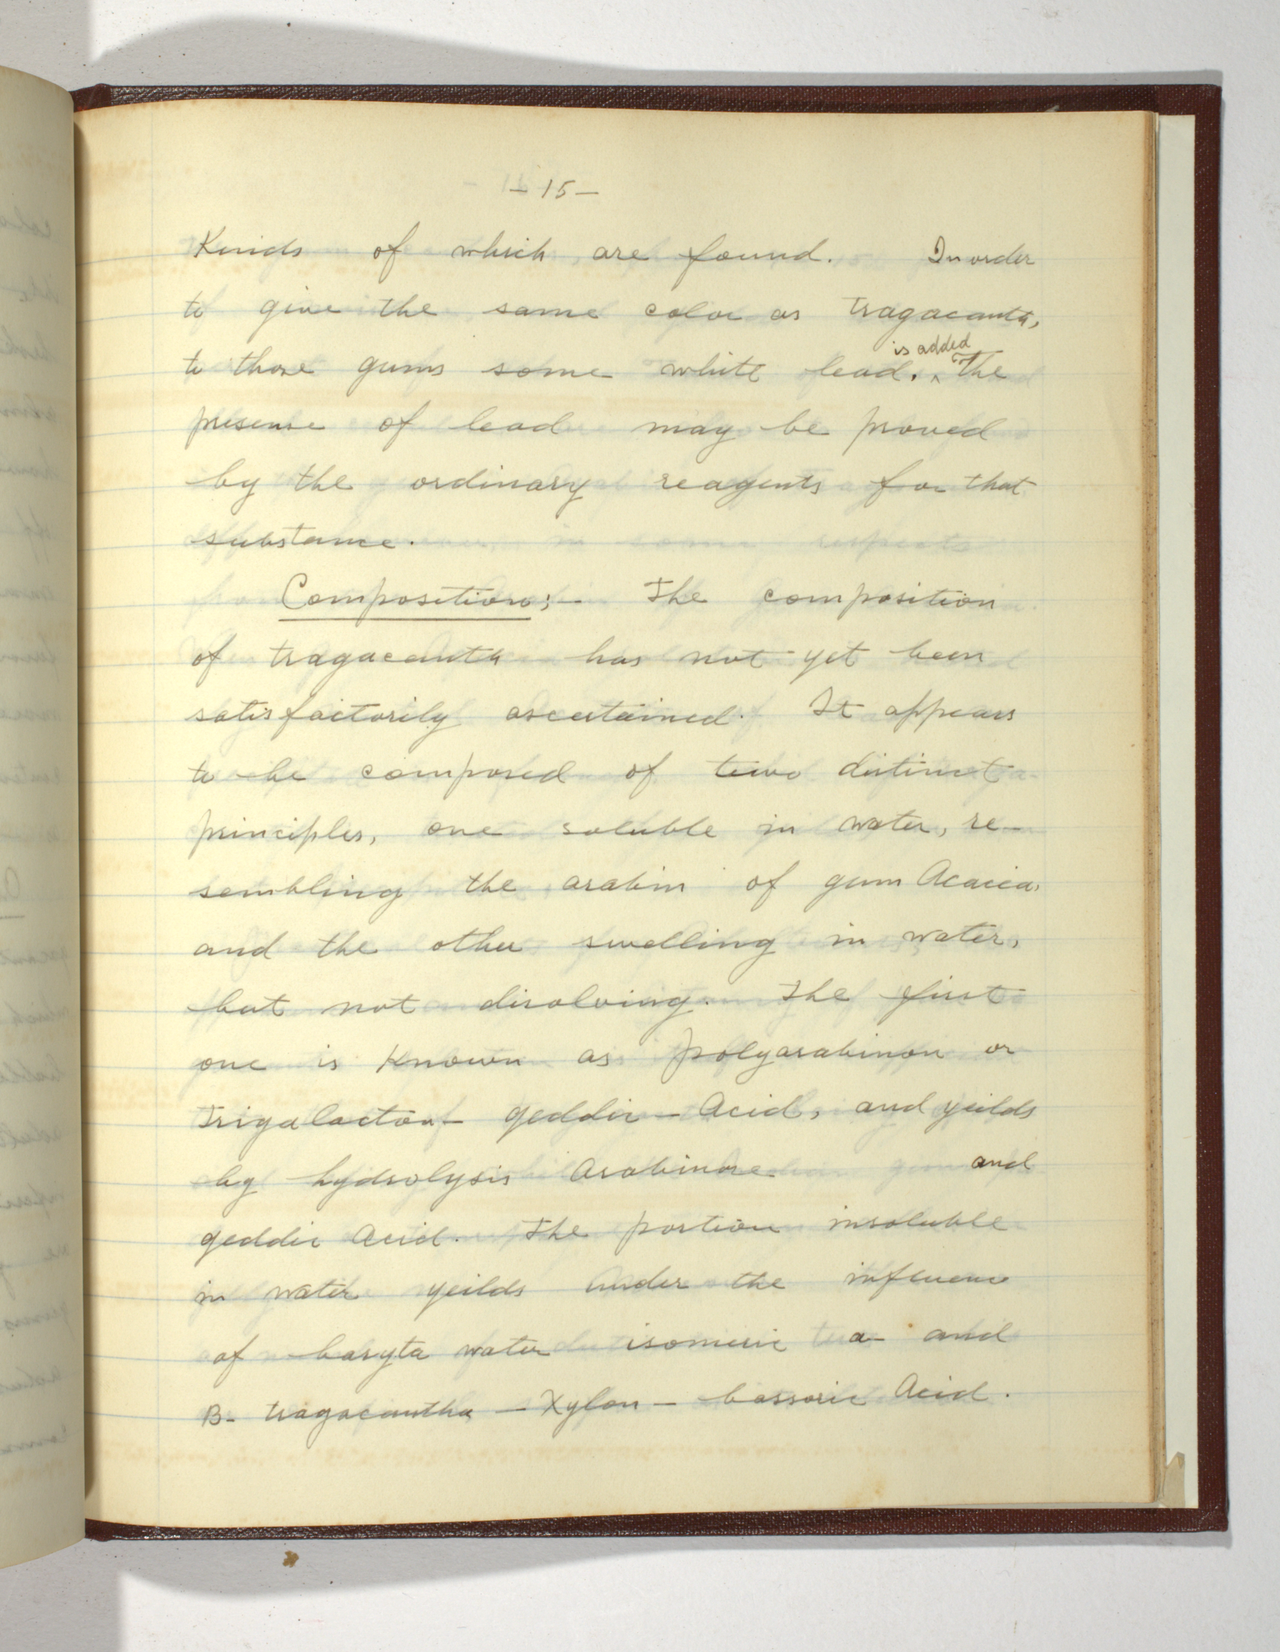 - 15 -
Kinds of which are found. In order
to give the same color as tragacanth,
to those gums some white lead. ^ is added The
presence of lead may be proved
by the ordinary reagents for that
substance.
Composition:- The composition
of tragacanth has not yet been
satisfactorily ascertained. It appears
to be composed of two distinct
principles, one soluble in water, re-
sembling the arabin of gum Acacia,
and the other swelling in water,
but not disolving. The first
one is known as polyarabinon or
Trigalacton- geddic- Acid, and yeilds
by hydrolysis Arabinose and
geddic Acid. The portion insoluble
in water yeilds under the influence
of baryta water isomeric a- and
B- tragacantha - Xylan - bassoric Acid.